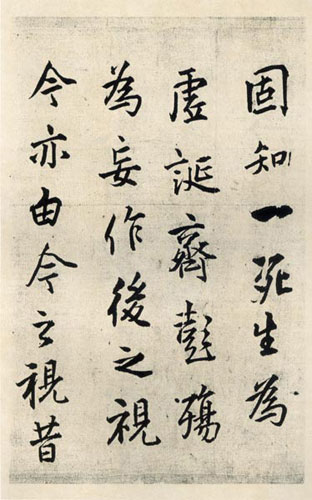 固知一死生為
虛誕齊彭殤
為妄作後之視
今亦由今之視昔